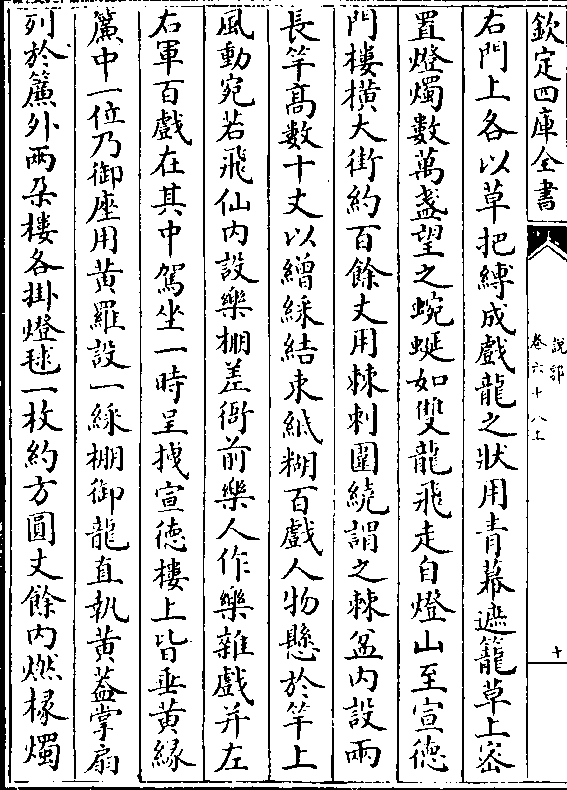 欽定四庫全書
說郛
卷六十八上
十
右門上各以草把縛成戲龍之狀用青幕遮籠草上密
置燈燭數萬盞望之蜿蜒如雙龍飛走自燈山至宣德
門樓橫大街約百餘丈用棘刺圍繞謂之棘盆内設兩
長竿高數十丈以繒綵結束紙糊百戲人物懸於竿上
風動宛若飛仙内設樂棚差衙前樂人作樂雜戲并左
右軍百戲在其中駕坐一時呈拽宣德樓上皆垂黄緣
簾中一位乃御座用黄羅設一綵棚御龍直執黄葢掌扇
列於簾外兩朶樓各掛燈毬一枚約方圓丈餘内燃椽燭